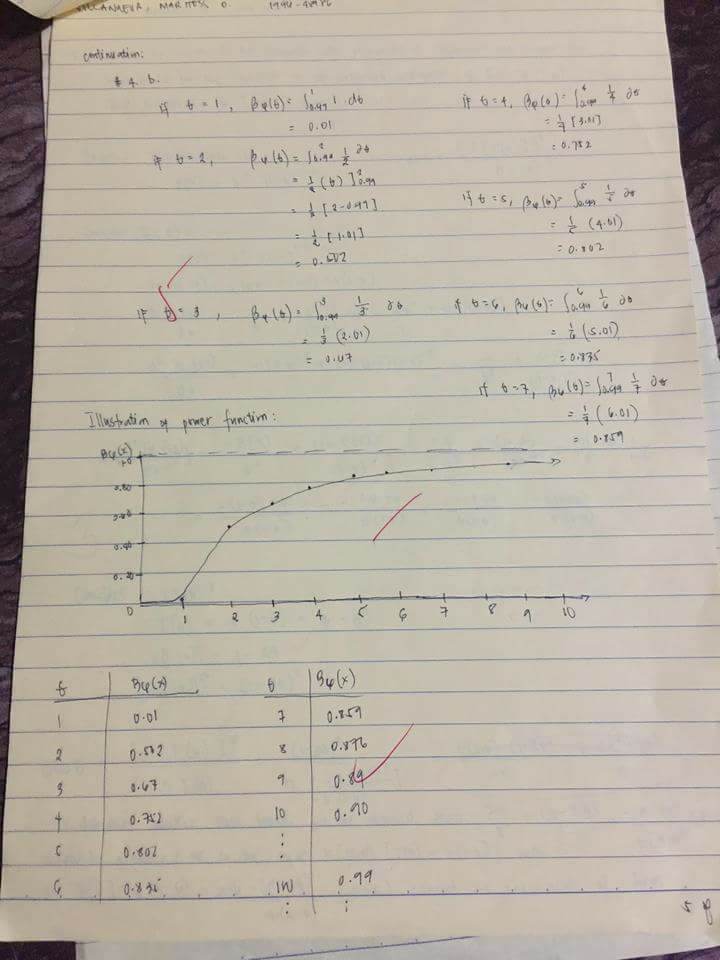 VILLANUEVA, MARITESS O.
continuation:
# 4. b.
if θ = 1, βφ(θ) = ∫0.99^1 1 · dθ
= 0.01
if θ = 2, βφ(θ) = ∫0.99^2 1/2 ∂θ
= 1/2 (θ) ]0.99^2
= 1/2 [2-0.99]
= 1/2 [1.01]
= 0.502
if θ = 3, βφ(θ) = ∫0.99^3 1/3 ∂θ
= 1/3 (2.01)
= 0.67
if θ = 4, βφ(θ) = ∫0.99^4 1/4 ∂θ
= 1/4 [3.01]
= 0.752
if θ = 5, βφ(θ) = ∫0.99^5 1/5 ∂θ
= 1/5 (4.01)
= 0.802
if θ = 6, βφ(θ) = ∫0.99^6 1/6 ∂θ
= 1/6 (5.01)
= 0.835
if θ = 7, βφ(θ) = ∫0.99^7 1/7 ∂θ
= 1/7 (6.01)
= 0.859
Illustration of power function:
βφ(x)
1.0
0.80
0.60
0.40
0.20
0 1 2 3 4 5 6 7 8 9 10
θ βφ(x) θ βφ(x)
1 0.01 7 0.859
2 0.502 8 0.876
3 0.67 9 0.89
4 0.752 10 0.90
5 0.802 ⋮
6 0.835 100 0.99
⋮ ⋮